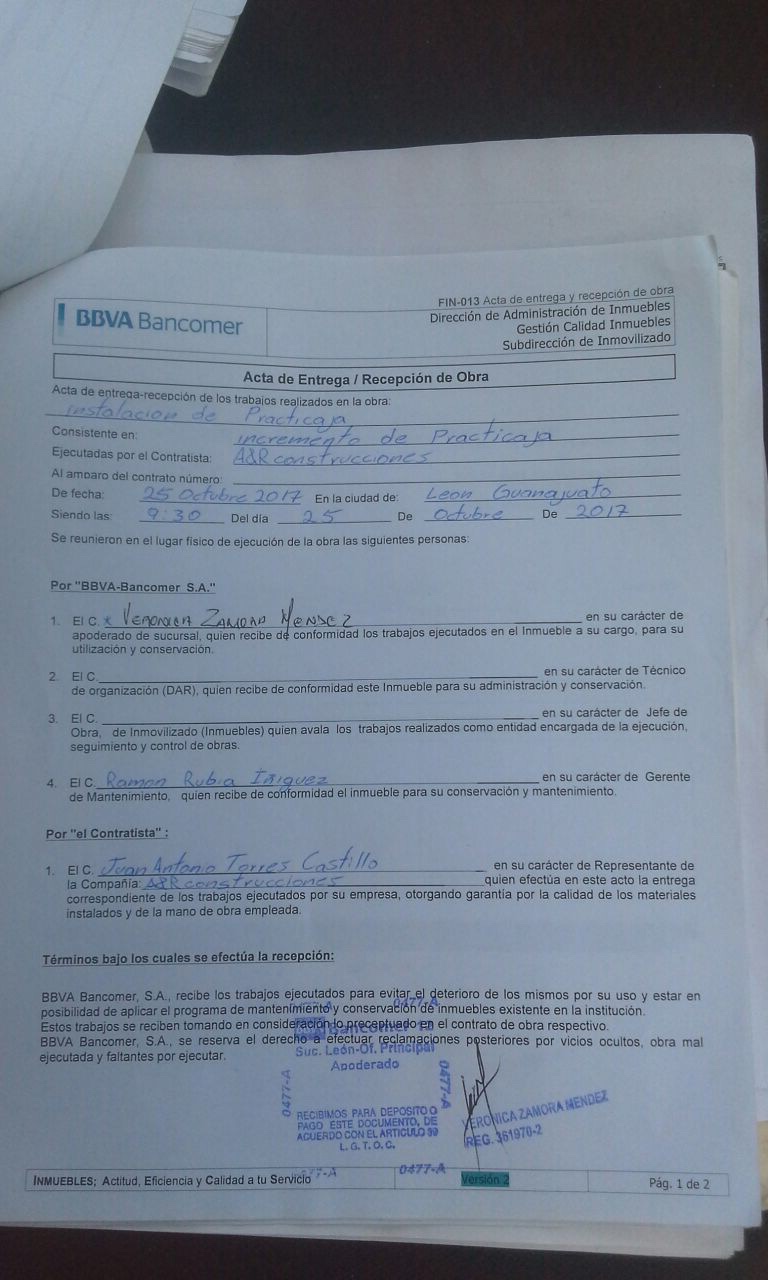 FIN-013 Acta de entrega y recepción de obra
BBVA Bancomer
Dirección de Administración de Inmuebles
Gestión Calidad Inmuebles
Subdirección de Inmovilizado
Acta de Entrega / Recepción de Obra
Acta de entrega-recepción de los trabajos realizados en la obra:
instalacion de Practicaja
Consistente en: incremento de Practicaja
Ejecutadas por el Contratista: A&R construcciones
Al amparo del contrato número:
De fecha: 25 Octubre 2017 En la ciudad de: Leon Guanajuato
Siendo las: 9:30 Del día 25 De Octubre De 2017
Se reunieron en el lugar físico de ejecución de la obra las siguientes personas:
Por "BBVA-Bancomer S.A."
1. El C. x VERONICA ZAMORA MENDEZ en su carácter de
apoderado de sucursal, quien recibe de conformidad los trabajos ejecutados en el Inmueble a su cargo, para su
utilización y conservación.
2. El C. en su carácter de Técnico
de organización (DAR), quien recibe de conformidad este Inmueble para su administración y conservación.
3. El C. en su carácter de Jefe de
Obra, de Inmovilizado (Inmuebles) quien avala los trabajos realizados como entidad encargada de la ejecución,
seguimiento y control de obras.
4. El C. Ramon Rubia Iñiguez en su carácter de Gerente
de Mantenimiento, quien recibe de conformidad el inmueble para su conservación y mantenimiento.
Por "el Contratista" :
1. El C. Juan Antonio Torres Castillo en su carácter de Representante de
la Compañía: A&R construcciones quien efectúa en este acto la entrega
correspondiente de los trabajos ejecutados por su empresa, otorgando garantía por la calidad de los materiales
instalados y de la mano de obra empleada.
Términos bajo los cuales se efectúa la recepción:
BBVA Bancomer, S.A., recibe los trabajos ejecutados para evitar el deterioro de los mismos por su uso y estar en
posibilidad de aplicar el programa de mantenimiento y conservación de inmuebles existente en la institución.
Estos trabajos se reciben tomando en consideración lo preceptuado en el contrato de obra respectivo.
BBVA Bancomer, S.A., se reserva el derecho a efectuar reclamaciones posteriores por vicios ocultos, obra mal
ejecutada y faltantes por ejecutar.
0477-A 0477-A
Bancomer
Suc. León-Of. Principal
Apoderado
0477-A 0477-A
RECIBIMOS PARA DEPOSITO O
PAGO ESTE DOCUMENTO, DE
ACUERDO CON EL ARTICULO 39
L. G. T. O. C.
VERONICA ZAMORA MENDEZ
REG. 361970-2
0477-A 0477-A
INMUEBLES; Actitud, Eficiencia y Calidad a tu Servicio Versión 2 Pág. 1 de 2